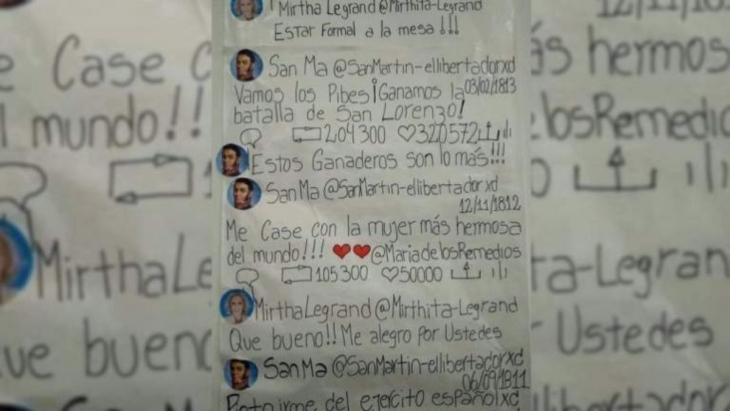 Mirtha Legrand @Mirthita-Legrand
Estar Formal a la mesa !!!
San Ma @SanMartin-ellibertadorxd
Vamos los Pibes ¡Ganamos la 03/02/1813
batalla de San Lorenzo!
204300 320572
Estos Ganaderos son lo más!!!
San Ma @SanMartin-ellibertadorxd
12/11/1812
Me Case con la mujer más hermosa
del mundo!!! ❤❤@MariadelosRemedios
105300 50000
MirthaLegrand @Mirthita-Legrand
Que bueno!! Me alegro por Ustedes
San Ma @SanMartin-ellibertadorxd
06/09/1811
irme del ejercito español xd